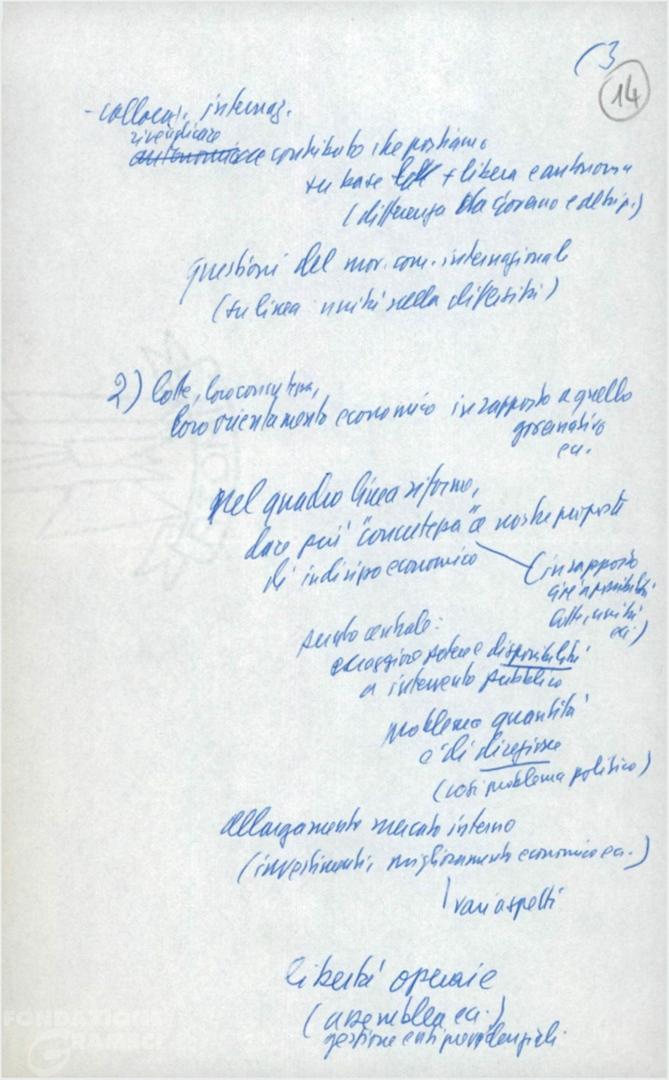 (3
14
- collocaz. internaz.
rivendicare
contributo che portiamo
su base + libera e autonoma
(differenza da governo e altri p.)
questioni del mov. com. internazionale
(su linea unità nella diversità)
2) lotte, loro consistenza,
loro orientamento economico in rapporto a quello
governativo
ecc.
nel quadro linea riforme,
dare più "concretezza" a nostre proposte
di indirizzo economico
(in rapporto
a possibilità
lotte, unità
ecc.)
punto centrale:
maggiore potere e disponibilità
a intervento pubblico
problema quantità
e di direzione
(così problema politico)
allargamento mercato interno
(investimenti, miglioramento economico ecc.)
vari aspetti
libertà operaie
(assemblea ecc.)
gestione enti previdenziali
FONDAZIONE
GRAMSCI